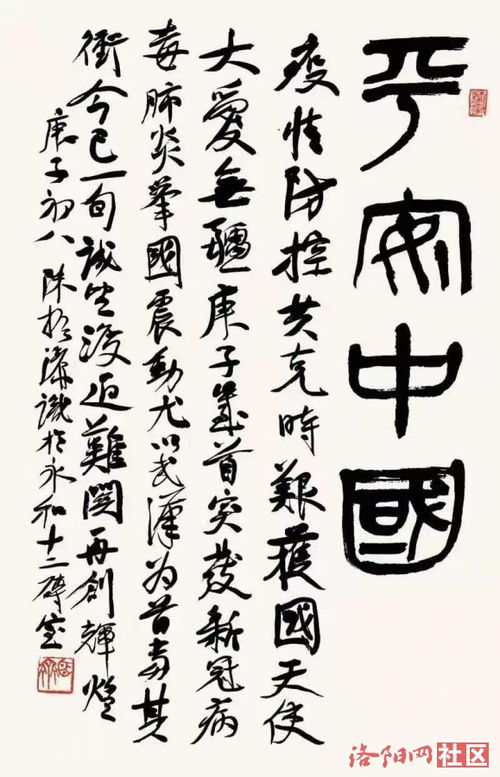 平安中國
疫情防控共克時艱護國天使
大愛無疆庚子歲首突發新冠病
毒肺炎舉國震動尤以武漢為首當其
衝今已一旬誠望渡過難關再創輝煌
庚子初八陳振濂識於永和十二磚室
洛阳网社区